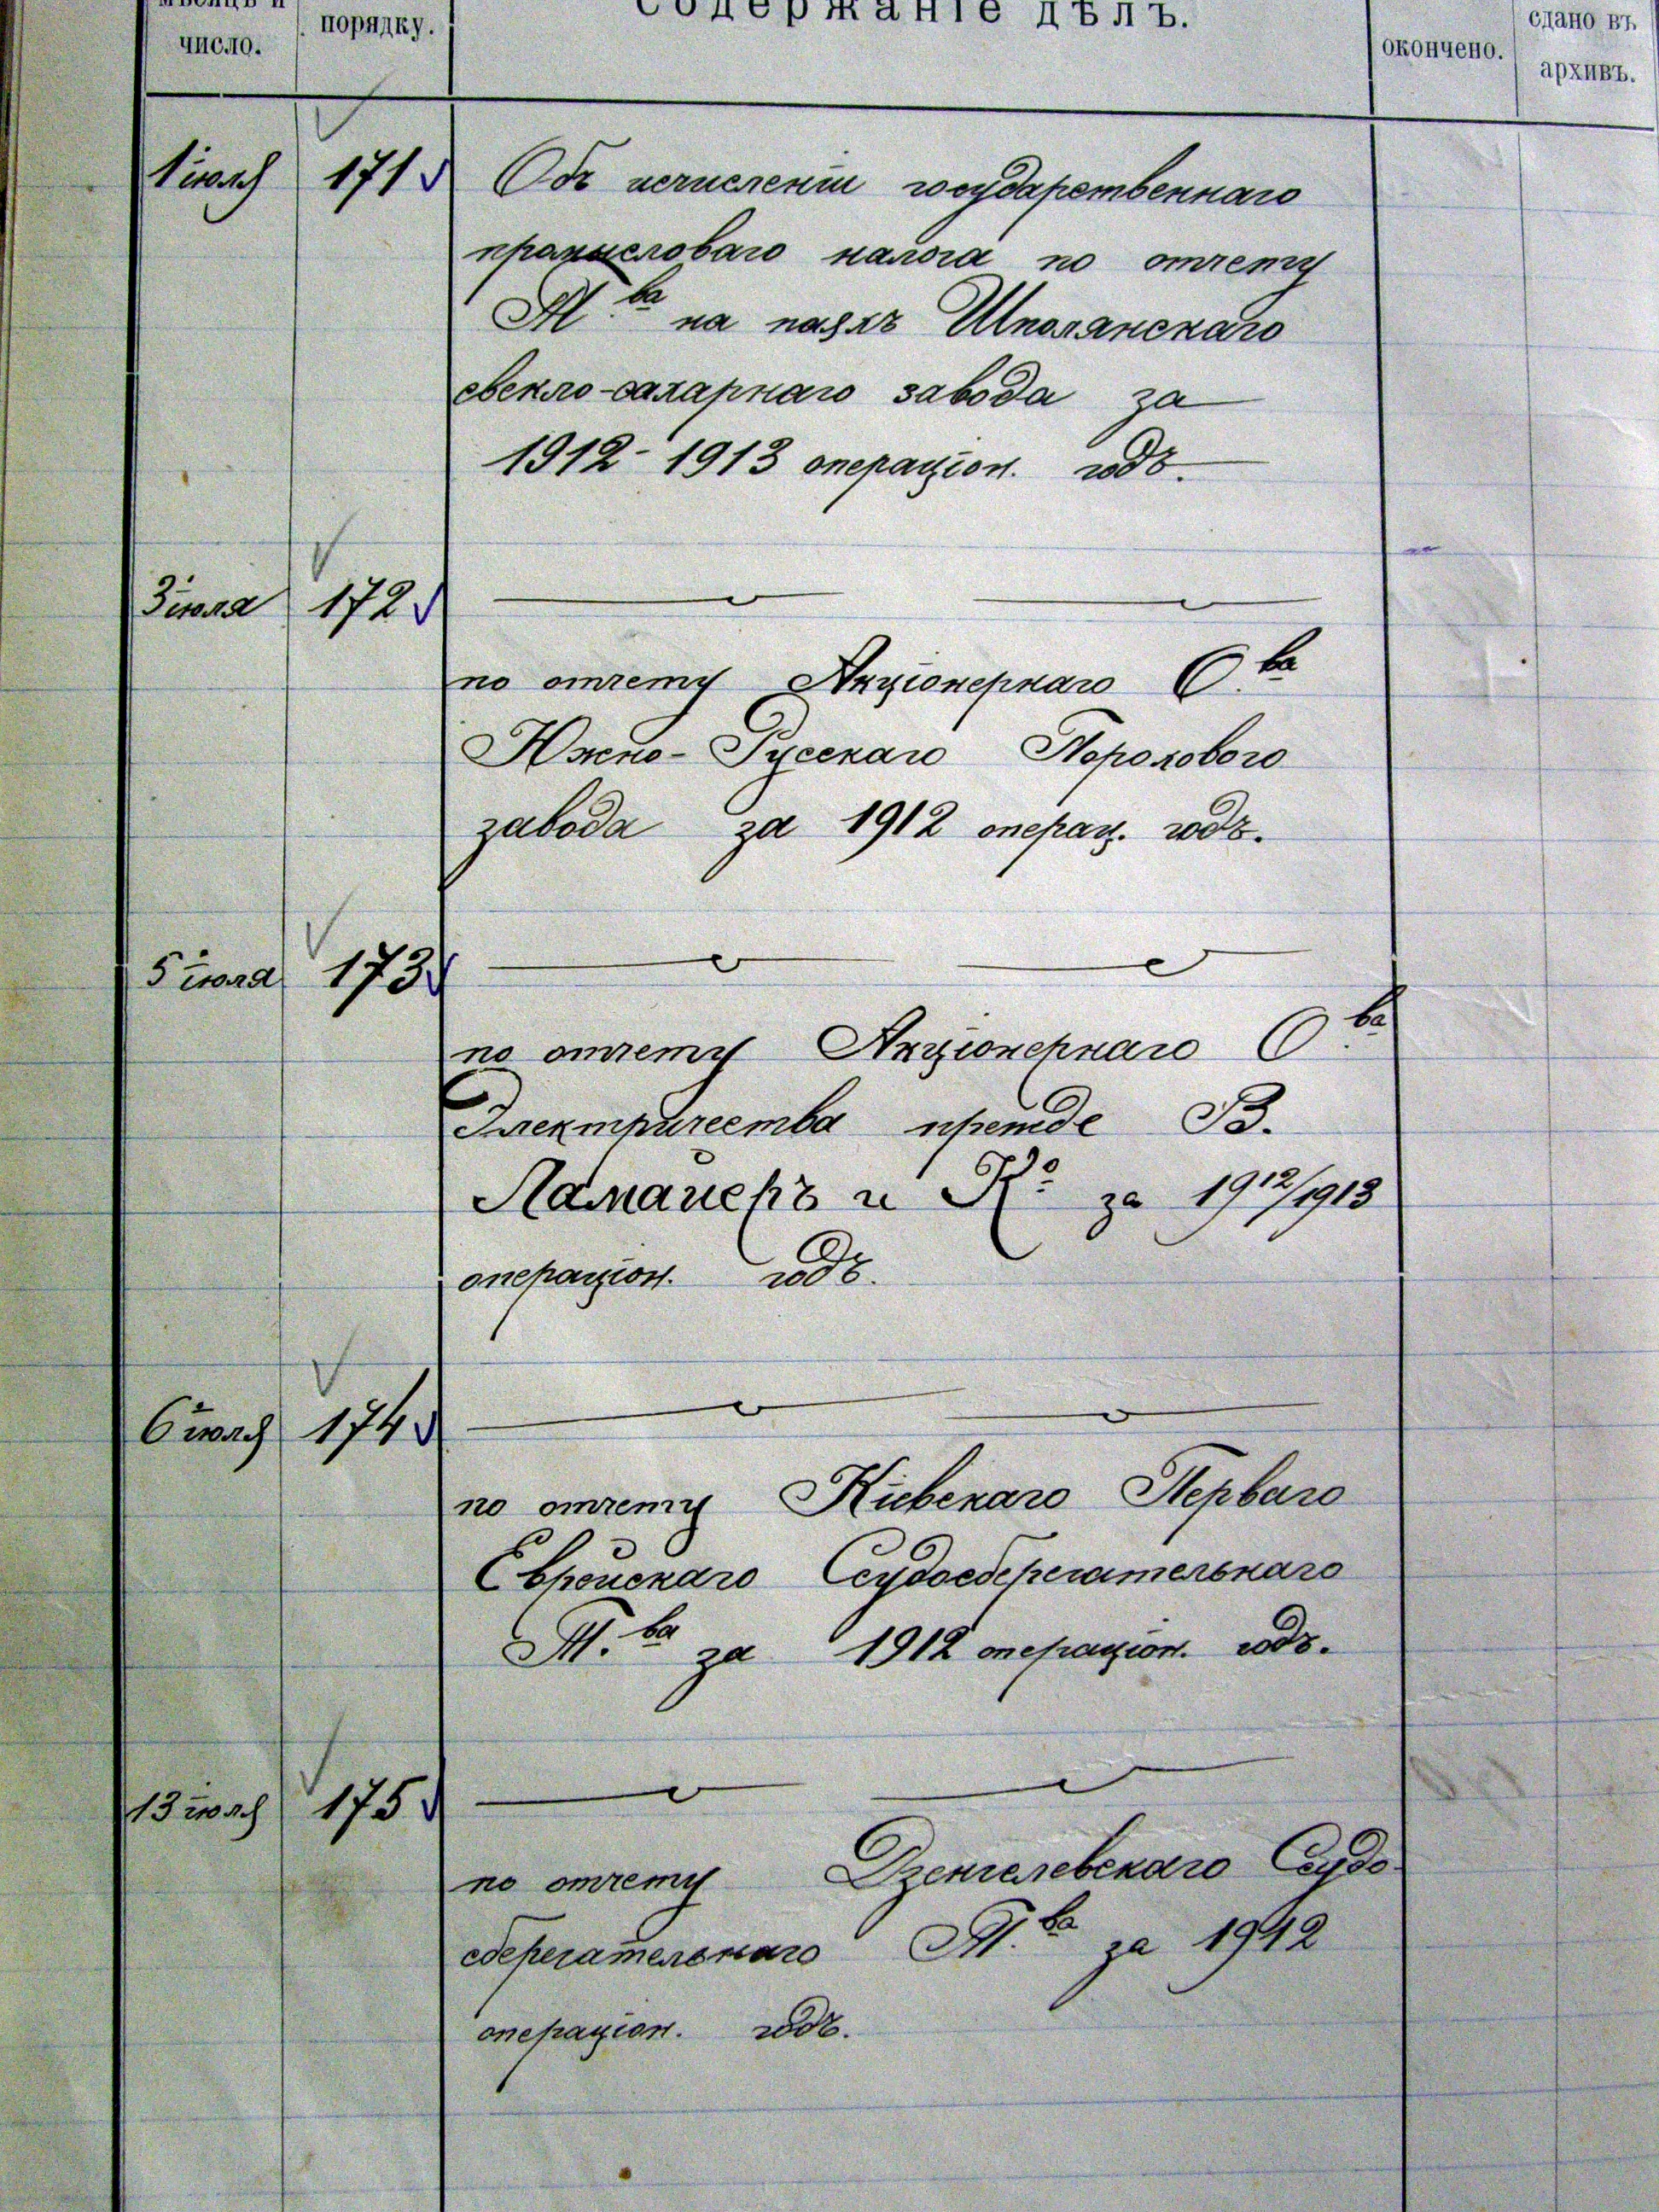 мѣсяцъ и
число.
порядку.
Содержаніе дѣлъ.
окончено.
сдано въ
архивъ.
1 іюля 171 Объ исчисленіи государственнаго
промысловаго налога по отчету
Т.ва на паяхъ Шполянскаго
свекло-сахарнаго завода за
1912-1913 операціон. годъ.
3 іюля 172
по отчету Акціонернаго О.ва
Южно-Русскаго Порохового
завода за 1912 операц. годъ.
5 іюля 173
по отчету Акціонернаго О.ва
Электричества прежде В.
Ламайеръ и Ко за 1912/1913
операціон. годъ.
6 іюля 174
по отчету Кіевскаго Перваго
Еврейскаго Ссудосберегательнаго
Т.ва за 1912 операціон. годъ.
13 іюля 175
по отчету Дзенгелевскаго Ссудо-
сберегательнаго Т.ва за 1912
операціон. годъ.